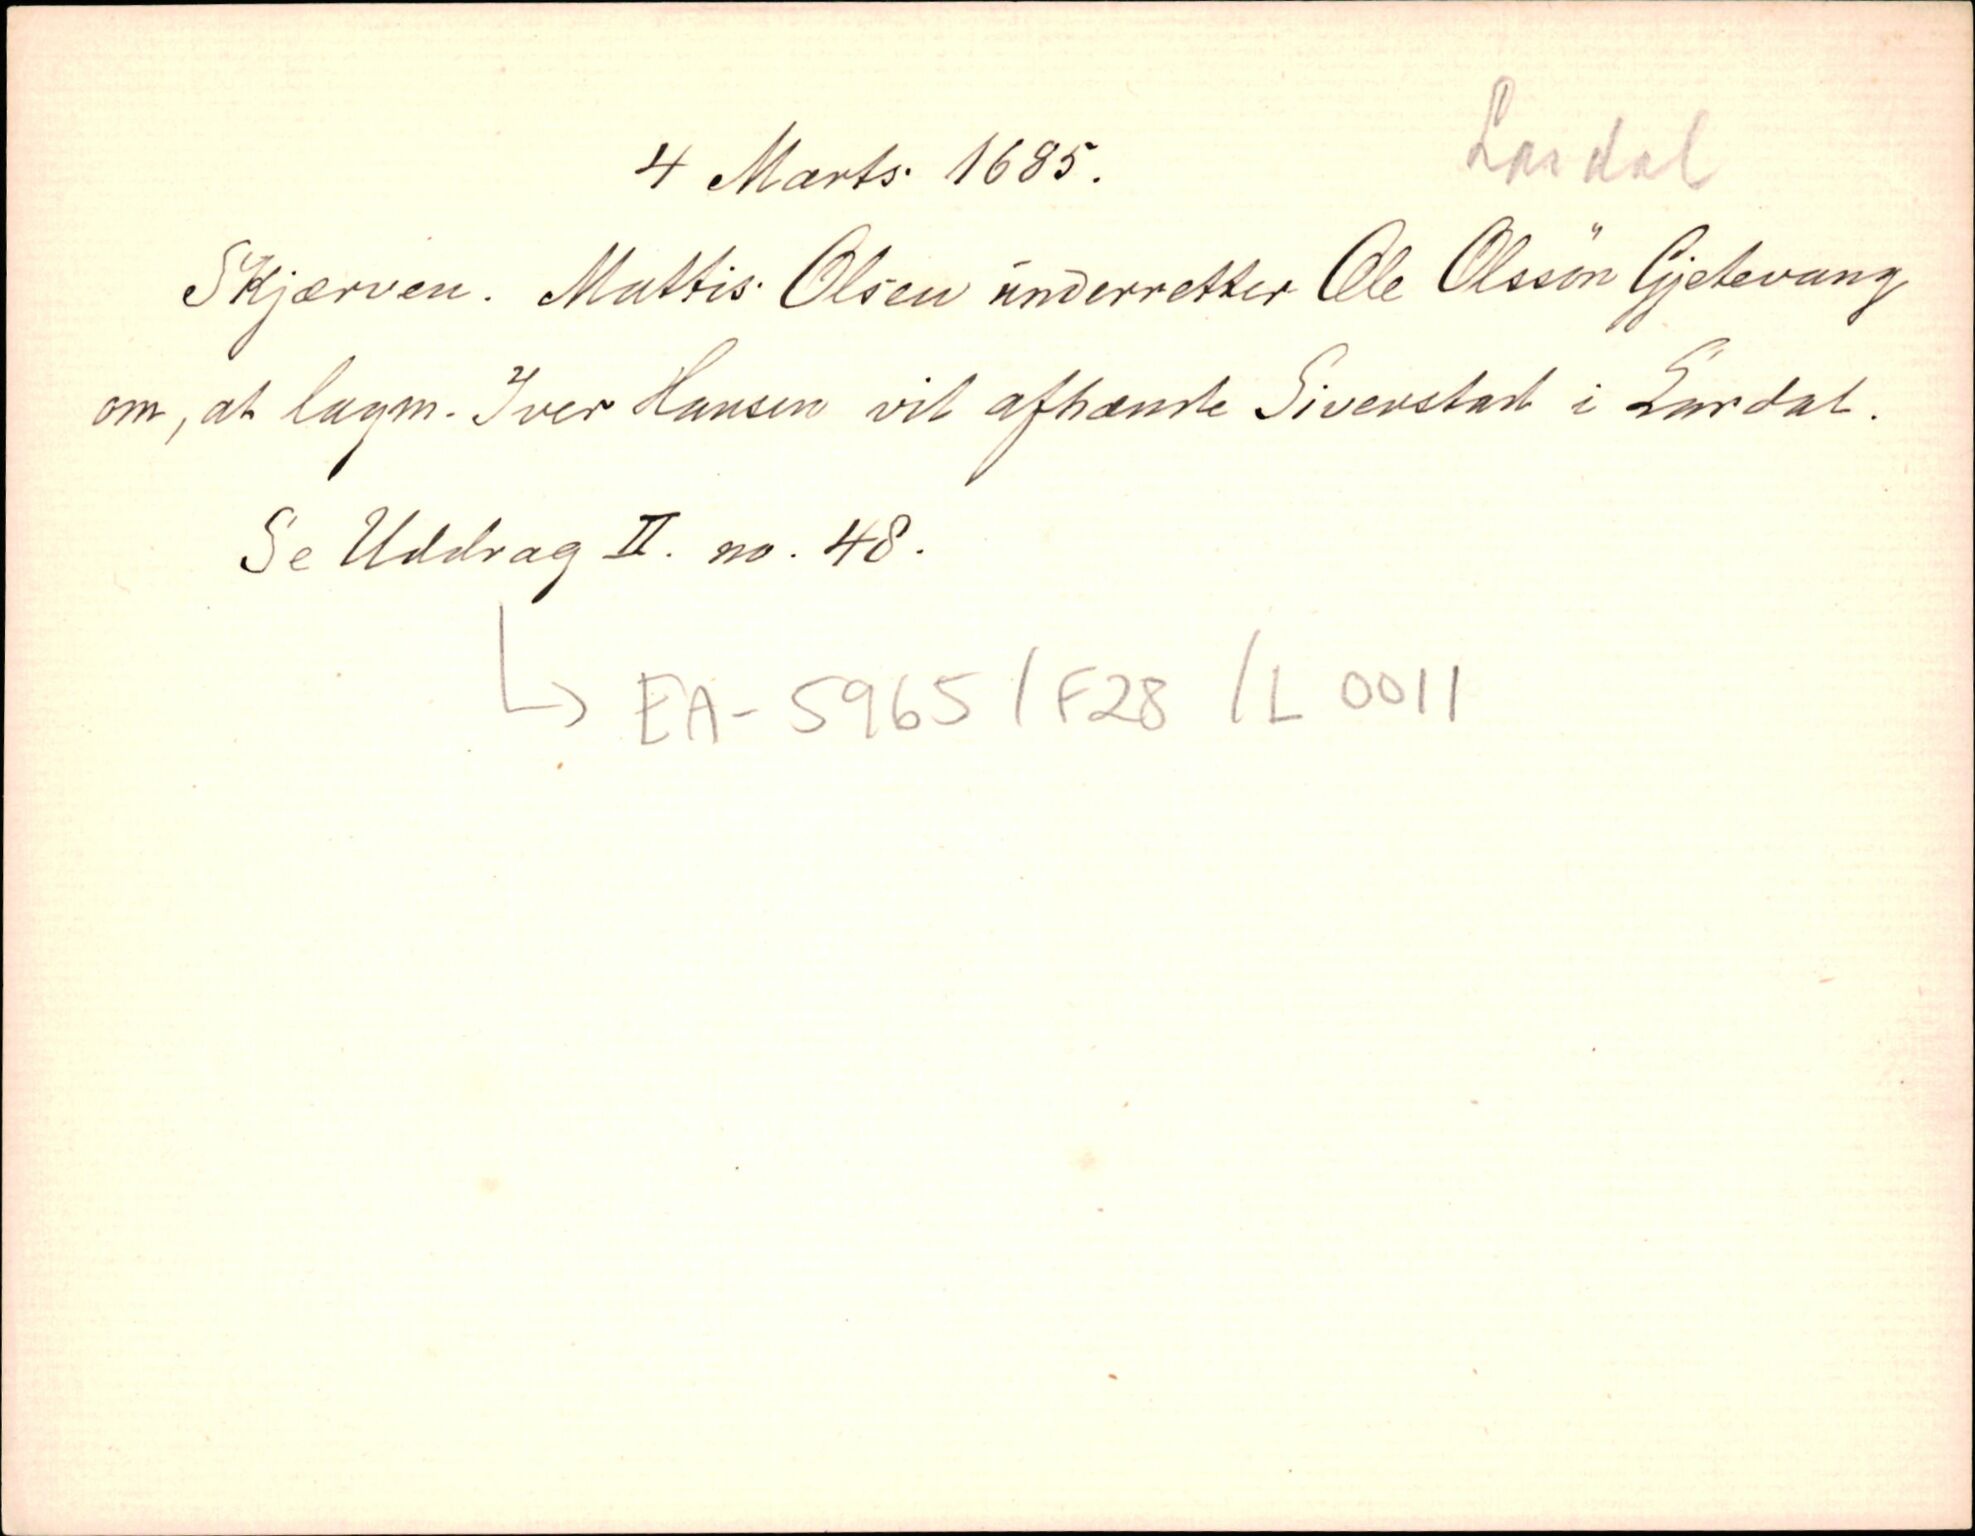 Lardal
4 Marts 1685.
Skjærven. Mattis Olsen underretter Ole Olssön Gjetevang
om, at lagm. Iver Hansen vil afhænde Siverstad i Lardal.
Se Uddrag II. no. 48.
↳ EA-5965/F28/L 0011